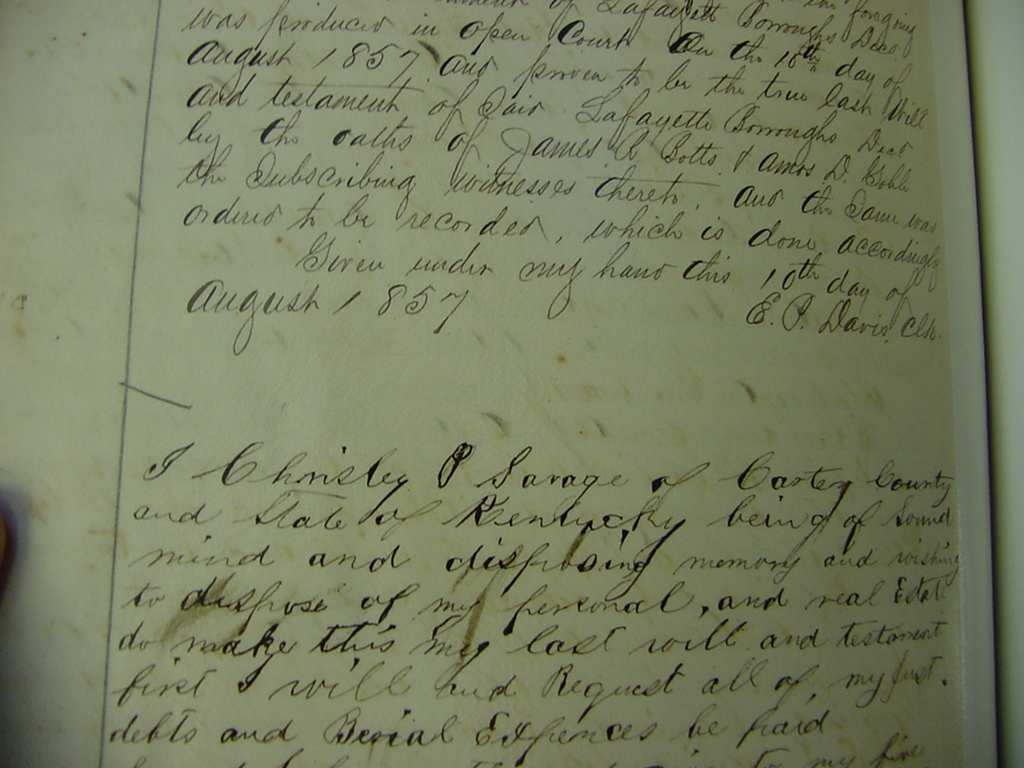 was produced in open Court on the 10th day of
August 1857, and proven to be the true last Will
and testament of Fair Lafayette Borroughs Decd
by the oaths of James W Botts & Amos D.
the Subscribing witnesses thereto, and the Same was
ordered to be recorded, which is done accordingly
Given under my hand this 10th day of
August 1857 E. P. Davis, Clk.
I Christly P Savage of Carter County
and State of Kentucky being of Sound
mind and dispusing memory and wishing
to dispose of my personal, and real Estate
do make this my last will and testament
first I will and Request all of my just
debts and Berial Expences be paid